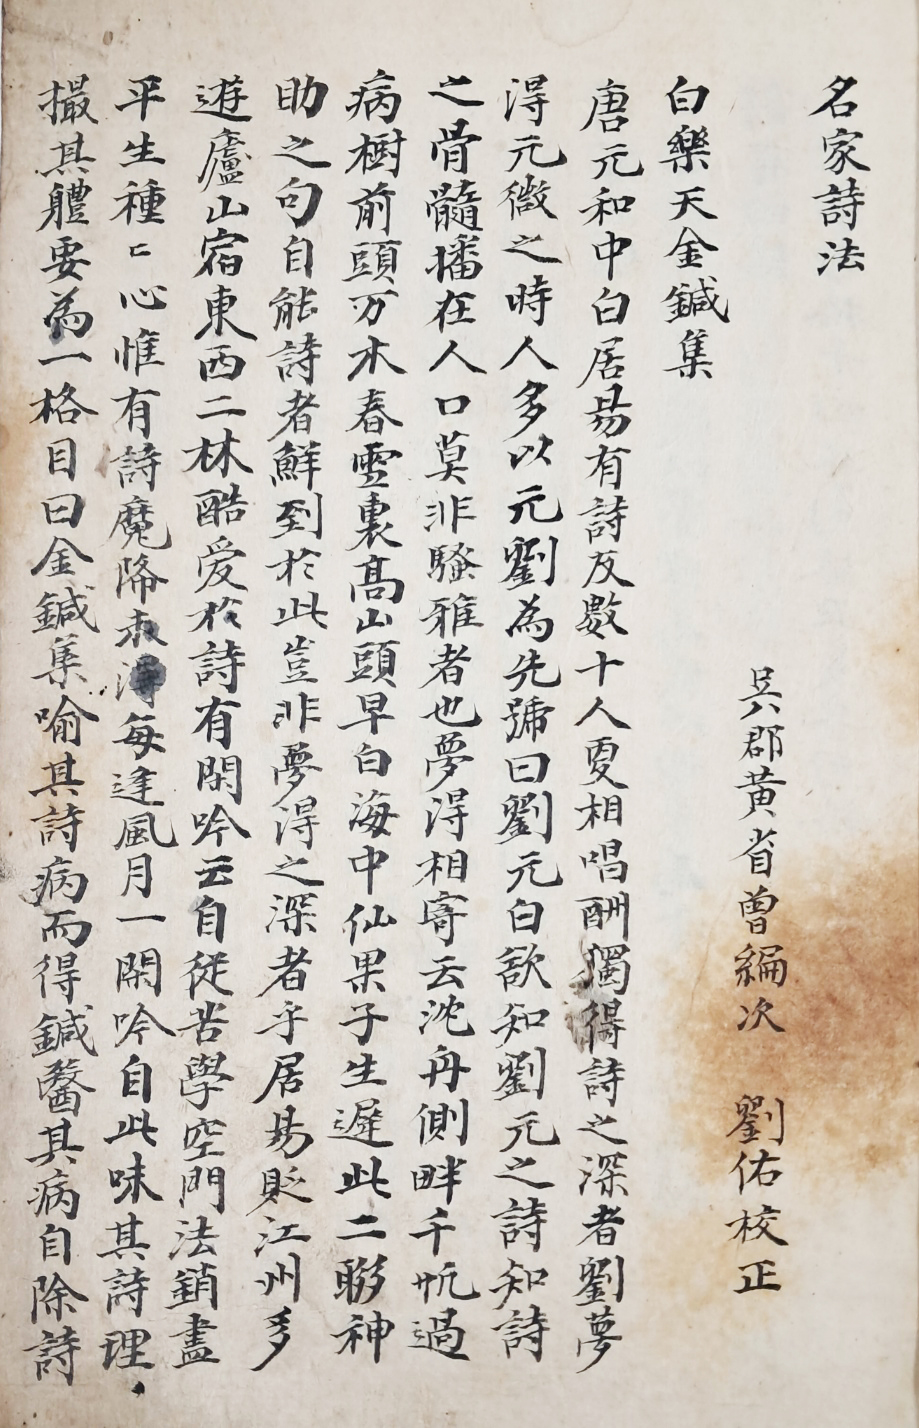 名家詩法
吳郡黃省曾編次 劉佑校正
白樂天金鍼集
唐元和中白居易有詩友數十人更相唱酬獨得詩之深者劉夢
得元微之時人多以元劉為先號曰劉元白欲知劉元之詩知詩
之骨髓播在人口莫非騷雅者也夢得相寄云沈舟側畔千帆過
病樹前頭万木春雪裏高山頭早白海中仙果子生遲此二聯神
助之句自能詩者鮮到於此豈非夢得之深者乎居易貶江州多
遊廬山宿東西二林酷爱於詩有閑吟云自從苦學空門法銷盡
平生種〻心惟有詩魔降未得每逢風月一閑吟自此味其詩理
撮其軆要為一格目曰金鍼集喻其詩病而得鍼醫其病自除詩